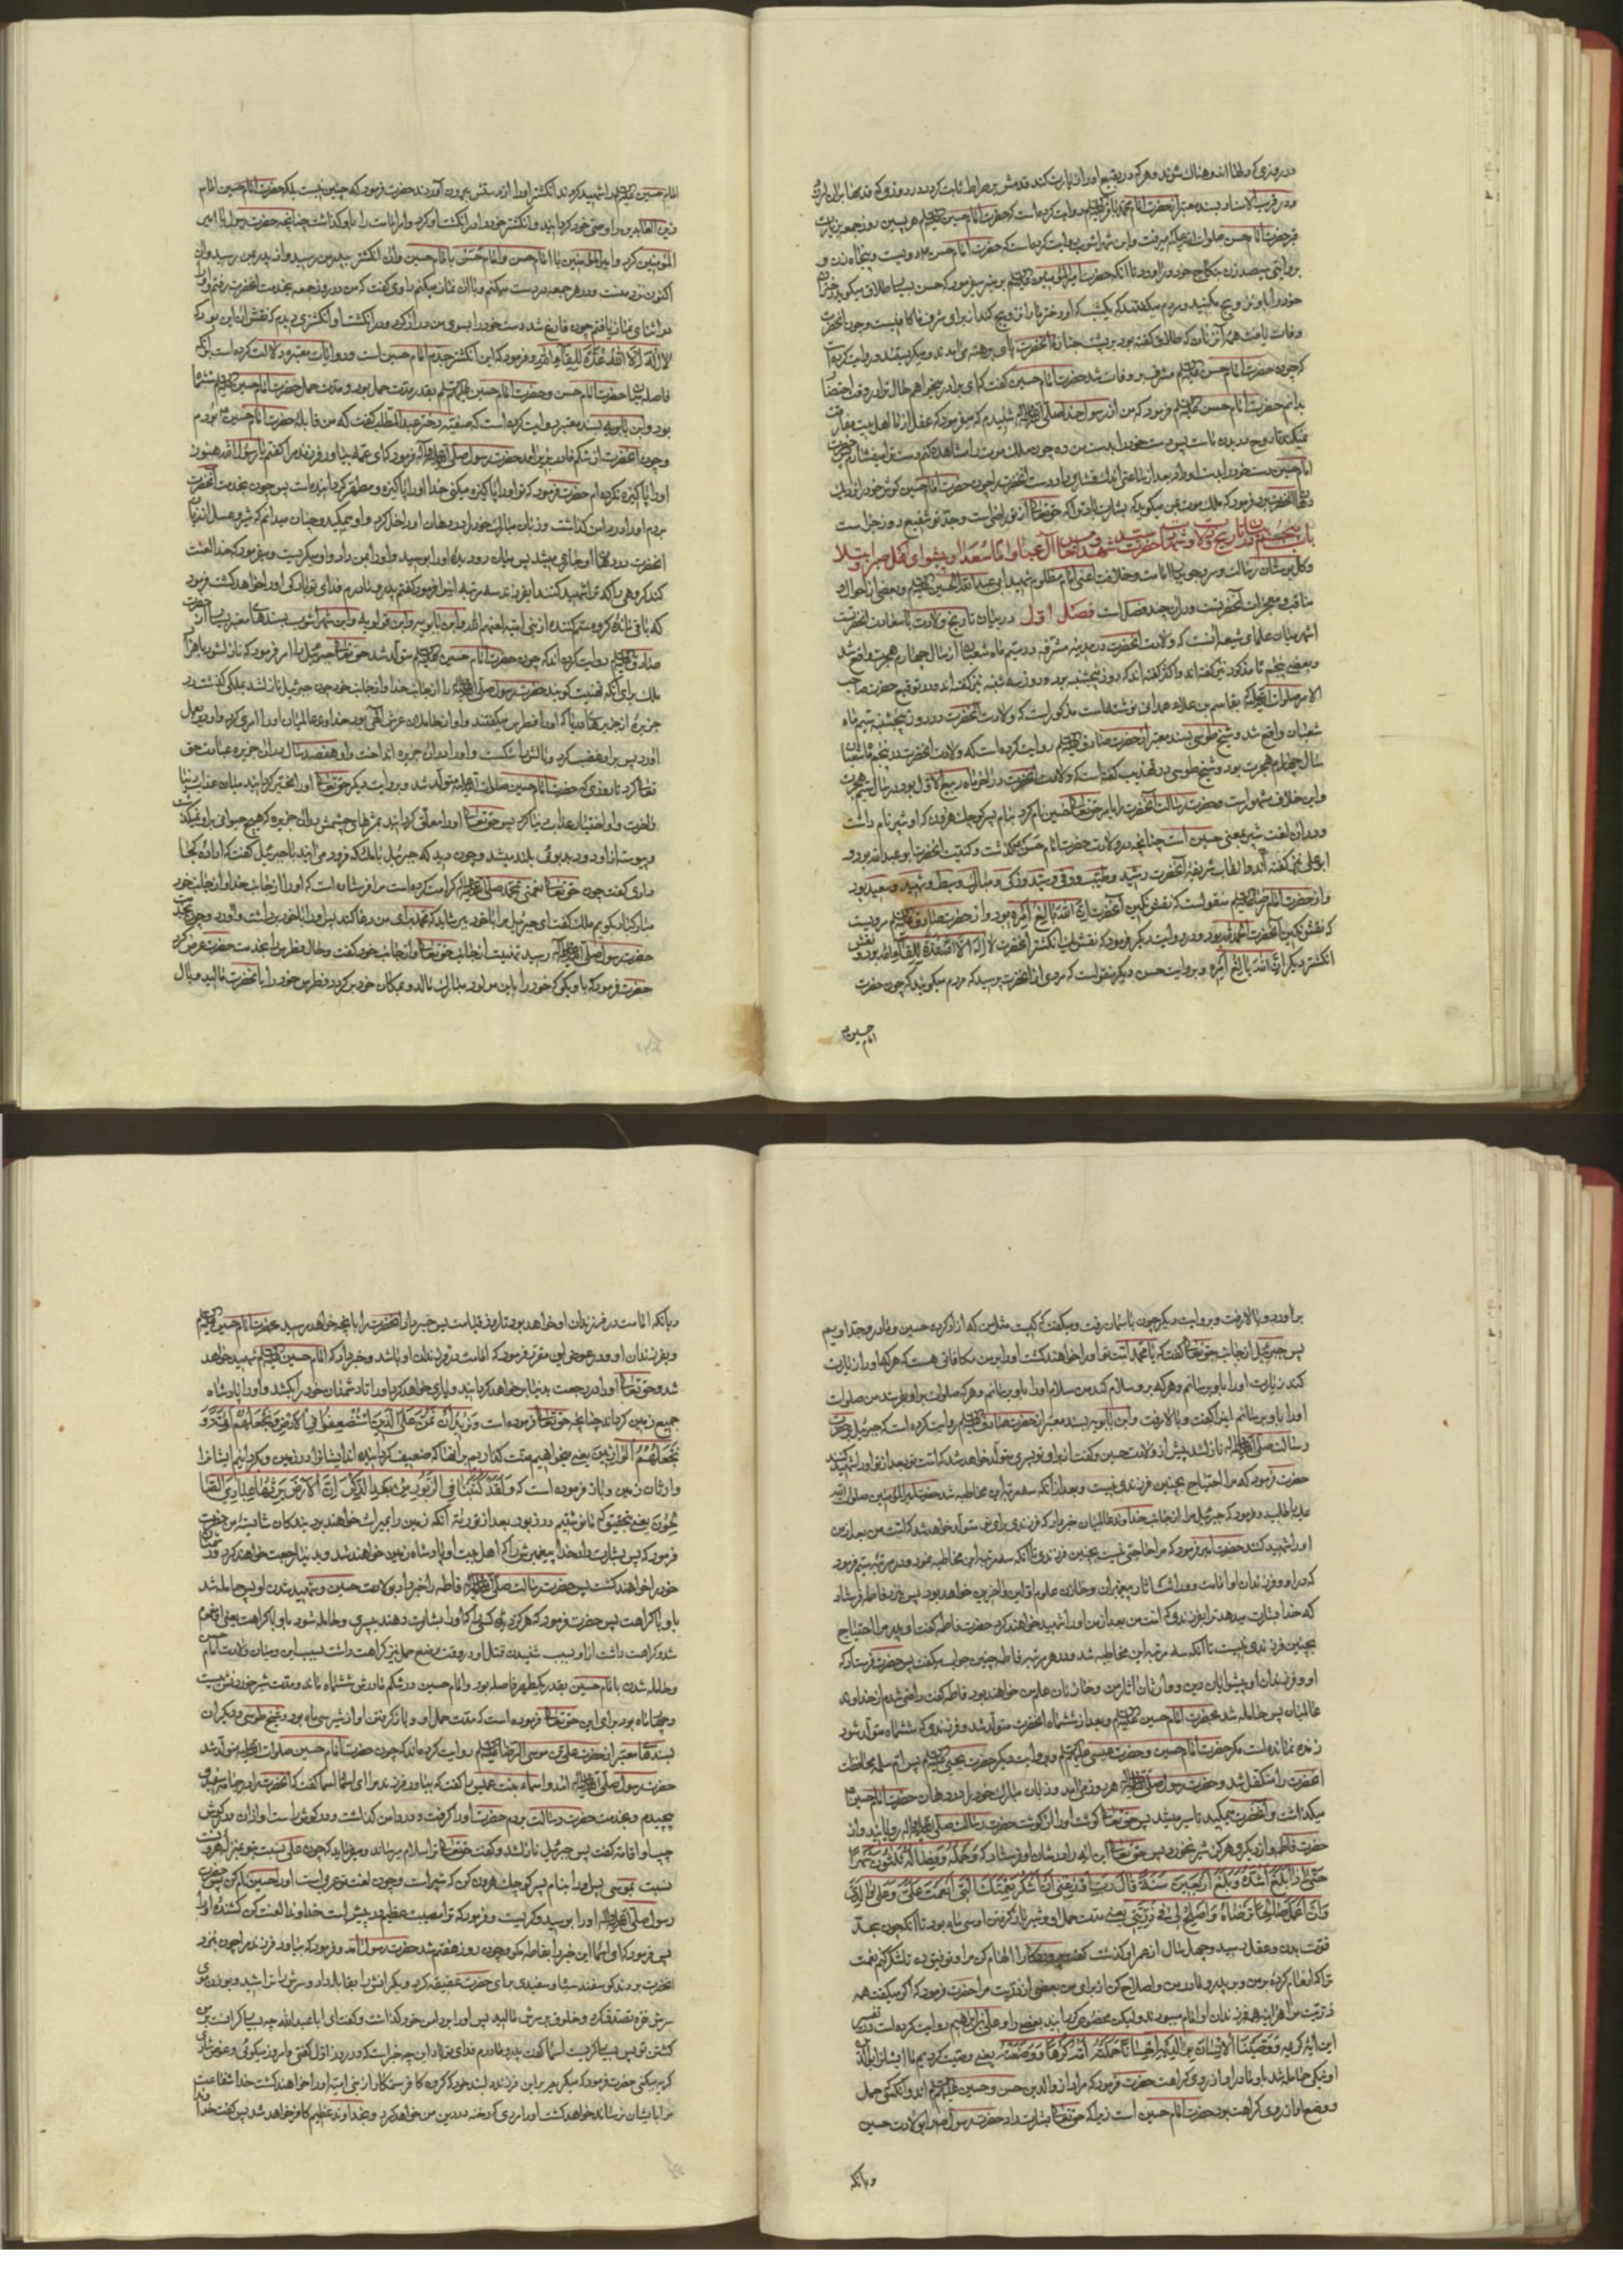 در روزی که دلها اندوهناک شوند و هر که در بقیع او را زیارت کند قدمش بر صراط ثابت گردد در روزی که قدمها بران لرزد
و در قرب الاسناد بسند معتبر از حضرت امام محمد باقر روایت کرده است که حضرت امام حسین هر پسین روز جمعه بزیارت
قبر حضرت امام حسن صلوات الله علیه میرفت و ابن شهر آشوب روایت کرده است که حضرت امام حسن دویست و پنجاه زن و
بروایتی سیصد زن بنکاح خود درآورد تا آنکه حضرت امیر المؤمنین بر منبر میفرمود که حسن بسیار طلاق میگوید دختران
خود را باو تزویج مکنید و مردم میگفتند که یکشب که او دختر ما را تزویج کند از برای شرف ما کافیست و چون آنحضرت
وفات یافت همه آن زنان که طلاق گفته بود در پشت جنازه آنحضرت پای برهنه می آمدند و میگریستند و روایت کرده است
که چون حضرت امام حسن مشرف بر وفات شد حضرت امام حسین گفت که ای برادر میخواهم حال ترا در وقت احتضار
بدانم حضرت امام حسن فرمود که من از رسول خدا شنیدم که میفرمود که عقل از ما اهل بیت مفارقت
نمیکند تا روح در بدن ماست پس دست خود را بدست من ده چون ملک موت را مشاهده کنم دست تو را میفشارم حضرت
امام حسین دست خود را بدست او داد بعد از ساعتی اندک فشاری داد دست آنحضرت را چون حضرت امام حسین گوش خود را نزدیک
دهان آنحضرت برد فرمود که ملک موت بمن میگوید که بشارت باد ترا که حق تعالی از تو راضی است و جد تو شفیع روز جزا است
باب پنجم در بیان تاریخ ولادت و شهادت حضرت سید شهدا و خامس آل عبا و امام سعدا و پیشوای اهل صبر و ابتلا
و گل بوستان رسالت و سرو جویبار امامت و خلافت اعنی امام مظلوم شهید ابی عبد الله الحسین و بعضی از احوال و
مناقب و معجزات آنحضرتست و دران چند فصل است فصل اول در بیان تاریخ ولادت با سعادت آنحضرتست
اشهر میان علمای شیعه آنست که ولادت آنحضرت در مدینه مشرفه در سیم ماه شعبان از سال چهارم هجرت واقع شد
و بعضی پنجم ماه مذکور نیز گفته اند و اکثر گفته اند که روز پنجشنبه بود و روز سه شنبه نیز گفته اند و در توقیع حضرت صاحب
الامر صلوات الله علیه که بقاسم بن علاء همدانی نوشته است مذکور است که ولادت آنحضرت در روز پنجشنبه سیم ماه
شعبان واقع شد و شیخ طوسی بسند معتبر از حضرت صادق روایت کرده است که ولادت آنحضرت در پنجم ماه شعبان
سال چهارم هجرت بود و شیخ طوسی در تهذیب گفته است که ولادت آنحضرت در آخر ماه ربیع الاول بود در سال سیم هجرت
و این خلاف مشهور است و حضرت رسالت آنحضرت را بامر حق تعالی حسین نام کرد بنام پسر کوچک هرون که او شبیر نام داشت
و در ان لغت شبیر بمعنی حسین است چنانچه در ولادت حضرت امام حسن گذشت و کنیت آنحضرت ابو عبد الله بود و
ابو علی نیز گفته اند و القاب شریفه آنحضرت رشید و طیب و وفی و سید و زکی و مبارک و سبط و شهید و سعید بود
و از حضرت امام رضا منقول است که نقش نگین آنحضرت ان الله بالغ امره بود و از حضرت صادق مرویست
که نقش نگین آنحضرت الحمد لله بود و در روایت دیگر فرمود که نقش یک انگشتر آنحضرت لا اله الا الله عدة للقاء الله بود و نقش
انگشتر دیگر ان الله بالغ امره و بروایت حسن دیگر منقول است که مردی از آنحضرت پرسید که مردم میگویند که چون حضرت
امام حسین
امام حسین را شهید کردند انگشتر او را از دستش بیرون آوردند حضرت فرمود که چنین نیست بلکه حضرت امام حسین امام
زین العابدین را وصی خود گردانید و انگشتر خود را در انگشت او کرد و امر امامت را باو گذاشت چنانچه حضرت رسول با امیر
المؤمنین کرد و امیر المؤمنین با امام حسن و امام حسن با امام حسین و آن انگشتر بپدر من رسید و از پدر من بمن رسید و آن
اکنون نزد منست و در هر جمعه در دست میکنم و با آن نماز میکنم راوی گفت که من در روز جمعه بخدمت آنحضرت رفتم و او را
در اثنای نماز یافتم چون فارغ شد دست خود را بسوی من دراز کرد و در انگشت او انگشتری دیدم که نقش آن این بود که
لا اله الا الله عدة للقاء الله و فرمود که این انگشتر جدم امام حسین است و روایات معتبره دلالت کرده است بر آنکه
فاصله میان حضرت امام حسن و حضرت امام حسین بقدر مدت حمل بود و مدت حمل حضرت امام حسین ششماه
بود و ابن بابویه بسند معتبر روایت کرده است که صفیه دختر عبد المطلب گفت که من قابله حضرت امام حسین بودم
و چون آنحضرت از شکم مادر بزیر آمد حضرت رسول فرمود که ای عمه بیاور فرزند مرا گفتم یا رسول الله هنوز
او را پاکیزه نکرده ام حضرت فرمود که تو او را پاکیزه میکنی خدا او را پاکیزه و مطهر گردانیده است پس چون بخدمت آنحضرت
بردم او را در دامن گذاشت و زبان مبارک خود را در دهان او داخل کرد و او میمکید و چنان میدانم که شیر و عسل از زبان
آنحضرت در دهان او جاری میشد پس میان دو دیده او را بوسید و او را بمن داد و او میگریست و میفرمود که خدا لعنت
کند گروهی را که ترا شهید کنند ای فرزند سه مرتبه این را فرمود گفتم پدر و مادرم فدای تو باد کی او را خواهد کشت فرمود
که باقی مانده گروه ستمکننده از بنی امیه لعنهم الله و ابن بابویه و ابن قولویه و ابن شهر آشوب بسندهای معتبر بسیار از حضرت
صادق روایت کرده اند که چون حضرت امام حسین متولد شد حق تعالی جبرئیل را امر فرمود که نازل شو با هزار
ملک برای آنکه تهنیت گوید حضرت رسول را از جانب خدا و از جانب خود چون جبرئیل نازل شد بملکی گذشت در
جزیره از جزیره های دریا که او را فطرس میگفتند و او از حاملان عرش الهی بود خداوند عالمیان او را امری کرد و او دیر بعمل
آورد پس بر او غضب کرد و بالش را شکست و او را در ان جزیره انداخت و او هفتصد سال در ان جزیره عبادت حق
تعالی کرد تا روزی که حضرت امام حسین صلوات الله علیه متولد شد و بروایت دیگر حق تعالی او را مخیر گردانید میان عذاب دنیا
و آخرت و او اختیار عذاب دنیا کرد پس حق تعالی او را معلق گردانید بمژهای چشمش در ان جزیره که هیچ حیوانی بر او نمیگذشت
و پیوسته از او دود بدبوئی بلند میشد و چون دید که جبرئیل با ملائکه فرود می آیند با جبرئیل گفت که اراده کجا
داری گفت چون حق تعالی نعمتی بمحمد کرامت کرده است مرا فرستاده است که او را از جانب خدا و از جانب خود
مبارکباد بگویم ملک گفت ای جبرئیل مرا با خود ببر شاید که محمد برای من دعا کند پس او را با خود برداشت و آورد و چون بخدمت
حضرت رسول رسید تهنیت از جانب حق تعالی و از جانب خود گفت و حال فطرس را بخدمت حضرت عرض کرد
حضرت فرمود که باو بگو که خود را باین مولود مبارک بمالد و بمکان خود برگردد و فطرس خود را بآنحضرت مالید و بال
برآورد و بالا رفت و بروایت دیگر چون بآسمان رفت و میگفت کیست مثل من که آزاد کرده حسین و مادر و جد اویم
پس جبرئیل از جانب حق تعالی گفت که یا محمد امت تو او را خواهند کشت او را بر من مکافاتی هست که هر که او را زیارت
کند زیارت او را باو برسانم و هر که بر او سلام کند من سلام او را باو برسانم و هر که صلوات بر او بفرستد من صلوات
او را باو برسانم اینرا گفت و بالا رفت و ابن بابویه بسند معتبر از حضرت صادق روایت کرده است که جبرئیل بر حضرت
رسالت نازل شد پیش از ولادت حسین و گفت از برای تو پسری متولد خواهد شد که امت تو بعد از تو او را شهید کنند
حضرت فرمود که مرا احتیاج بچنین فرزندی نیست و بعد از آنکه سه مرتبه این مخاطبه شد حضرت امیر المؤمنین صلوات الله
علیه را طلبید و فرمود که جبرئیل مرا از جانب خداوند عالمیان خبر داد که فرزندی برای تو متولد خواهد شد که امت من بعد از من
او را شهید کنند حضرت امیر فرمود که مرا حاجتی نیست بچنین فرزندی تا آنکه سه مرتبه این مخاطبه نمود و در مرتبه سیم فرمود
که در او و فرزندان او امامت و وراثت آثار پیغمبران و خازن علوم اولین و آخرین خواهد بود پس بنزد فاطمه فرستاد
که خدا بشارت میدهد ترا بفرزندی که امت من بعد از من او را شهید خواهند کرد حضرت فاطمه گفت ای پدر مرا احتیاج
بچنین فرزندی نیست تا آنکه سه مرتبه این مخاطبه شد و در هر مرتبه فاطمه چنین جواب میگفت پس حضرت فرستاد که
او و فرزندان او پیشوایان دین و وارثان آثار من و خازنان علم من خواهند بود فاطمه گفت راضی شدم از خداوند
عالمیان پس حامله شد بحضرت امام حسین و بعد از ششماه آنحضرت متولد شد و فرزندی که ششماه متولد شود
زنده نمانده است مگر حضرت امام حسین و حضرت عیسی و بروایت دیگر حضرت یحیی پس ام سلمه محافظت
آنحضرت را متکفل شد و حضرت رسول هر روز می آمد و زبان مبارک خود را در دهان حضرت امام حسین
میگذاشت و آنحضرت میمکید تا سیر میشد پس حق تعالی گوشت او را از گوشت حضرت رسالت رویانید و از
حضرت فاطمه و از دیگری هرگز شیر نخورد پس حق تعالی این آیه را در شان او فرستاد که وحمله وفصاله ثلثون شهرا
حتی اذا بلغ اشده وبلغ اربعین سنة قال رب اوزعنی ان اشکر نعمتک التی انعمت علی وعلی والدی
وان اعمل صالحا ترضاه واصلح لی فی ذریتی یعنی مدت حمل او و شیر باز گرفتن او سی ماه بود تا آنکه چون بحد
قوت بدن و عقل رسید و چهل سال از عمر او گذشت گفت پروردگارا الهام کن مرا و توفیق ده تا شکر کنم نعمت
ترا که انعام کرده بر من و بر پدر و مادر من و اصلاح کن از برای من بعضی از ذریت مرا حضرت فرمود که اگر میگفت همه
ذریت مرا هرآینه همه فرزندان او امام میبودند ولیکن مخصوص گردانید بعضی را و علی بن ابراهیم روایت کرده است در تفسیر
این آیه کریمه ووصینا الانسان بوالدیه احسانا حملته امه کرها ووضعته کرها یعنی وصیت کردیم ما انسان را بوالدین
او نیکی حامله شد باو مادر او از روی کراهت حضرت فرمود که مراد از والدین حسن و حسین اند و آنکسی حمل
و وضع او از روی کراهت بود حضرت امام حسین است زیرا که حق تعالی بشارت داد حضرت رسول را بولادت حسین
و بآنکه
و بآنکه امامت در فرزندان او خواهد بود تا روز قیامت پس خبر داد آنحضرت را بآنچه خواهد رسید بحضرت امام حسین
و بفرزندان او و در عوض این مقرر فرمود که امامت در فرزندان او باشد و خبر داد که امام حسین شهید خواهد
شد و حق تعالی او را در رجعت بدنیا بر خواهد گردانید و یاری خواهد کرد او را تا دشمنان خود را بکشد و او را پادشاه
جمیع زمین گرداند چنانچه حق تعالی فرموده است ونرید ان نمن علی الذین استضعفوا فی الارض ونجعلهم ائمة و
نجعلهم الوارثین یعنی میخواهیم منت گذاریم بر آنها که ضعیف گردانیده اند ایشانرا در زمین و بگردانیم ایشانرا
وارثان زمین و باز فرموده است که ولقد کتبنا فی الزبور من بعد الذکر ان الارض یرثها عبادی الصا
لحون یعنی بتحقیق که ما نوشتیم در زبور بعد از توریة آنکه زمین را بمیراث خواهند برد بندگان شایسته من حضرت
فرمود که پس بشارت داد خدا پیغمبرش را که اهل بیت او پادشاه زمین خواهند شد و بدنیا رجعت خواهند کرد و دشمنان
خود را خواهند کشت پس حضرت رسالت فاطمه را خبر داد بولادت حسین و شهید شدن او پس حامله شد
باو با کراهت پس حضرت فرمود که هرگز دیده کسی را که او را بشارت دهند بپسری و حامله شود باو با کراهت یعنی مغموم
شد و کراهت داشت از او بسبب شنیدن قتل او و در وقت وضع حمل نیز کراهت داشت بسبب این و میان ولادت امام حسن
و حامله شدن بامام حسین بقدر یکطهر فاصله بود و امام حسین در شکم مادرش ششماه ماند و مدت شیر خوردنش بیست
و چهار ماه بود برای این حق تعالی فرموده است که مدت حمل او و باز گرفتن او از شیر سی ماه بود و شیخ طوسی و دیگران
بسندهای معتبر از حضرت علی بن موسی الرضا روایت کرده اند که چون حضرت امام حسین صلوات الله علیه متولد شد
حضرت رسول آمد و اسماء بنت عمیس را گفت که بیاور فرزند مرا ای اسما اسما گفت که آنحضرت را در جامه سفیدی
پیچیدم و بخدمت حضرت رسالت بردم حضرت او را گرفت و در دامن گذاشت و در گوش راست او اذان و در گوش
چپ او اقامه گفت پس جبرئیل نازل شد و گفت حق تعالی ترا سلام میرساند و میفرماید که چون علی نسبت بتو بمنزله هرونست
نسبت بموسی پس او را بنام پسر کوچک هرون کن که شبیر است و چون لغت تو عربی است او را حسین نام کن پس حضرت
رسول او را بوسید و گریست و فرمود که ترا مصیبتی عظیم در پیش است خداوندا لعنت کن کشنده او را
پس فرمود که ای اسما این خبر را بفاطمه مگو چون روز هفتم شد حضرت رسول آمد و فرمود که بیاور فرزند مرا چون بنزد
آنحضرت بردند گوسفند سیاه و سفیدی برای حضرت عقیقه کرد و یکرانش را بقابله داد و سرش را تراشید و بوزن موی
سرش نقره تصدق کرد و خلوق بر سرش مالید پس او را بر دامن خود گذاشت و گفت ای ابا عبد الله چه بسیار گرانست بر من
کشتن تو پس بسیار گریست اسما گفت پدر و مادرم فدای تو باد این چه خبر است که در روز اول گفتی و امروز میگوئی و بعوض شادی
گریه میکنی حضرت فرمود که میگریم بر این فرزند دلبند خود که گروه کافر ستمکار از بنی امیه او را خواهند کشت خدا شفاعت
مرا بایشان نرساند خواهد کشت او را مردی که رخنه در دین من خواهد کرد و بخداوند عظیم کافر خواهد شد پس گفت خداوندا